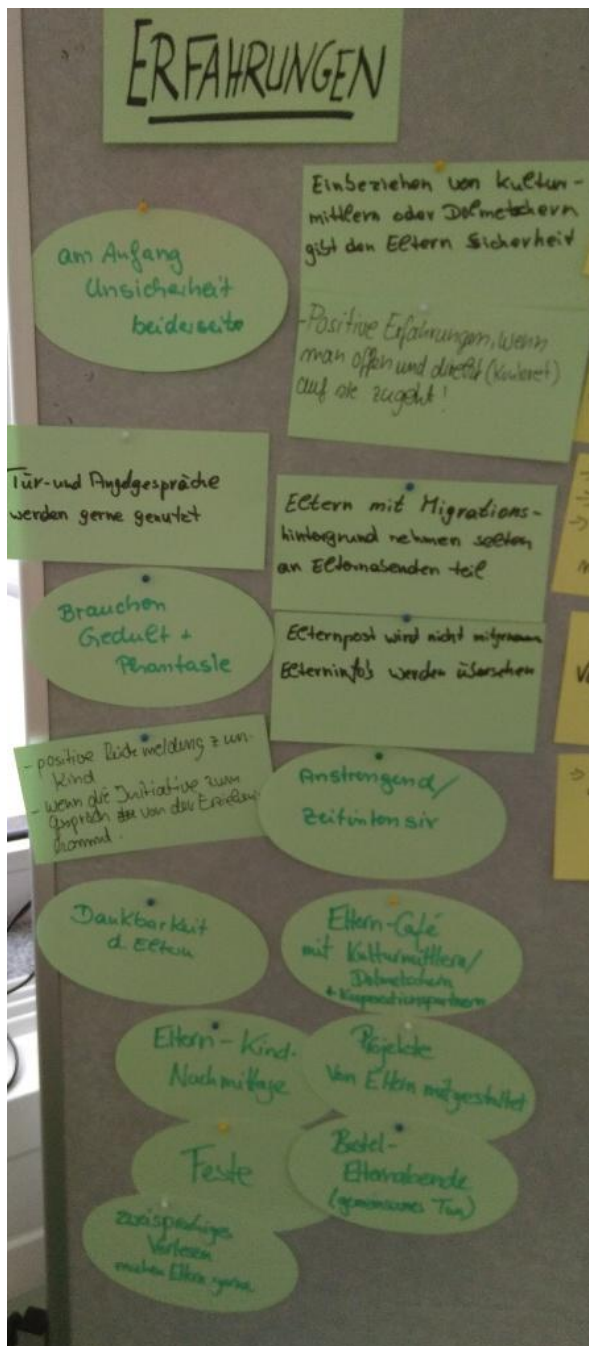 ERFAHRUNGEN
am Anfang
Unsicherheit
beiderseits
Einbeziehen von Kultur-
mittlern oder Dolmetschern
gibt den Eltern Sicherheit
-Positive Erfahrungen, wenn
man offen und direkt (konkret)
auf sie zugeht!
Tür- und Angelgespräche
werden gerne genutzt
Eltern mit Migrations-
hintergrund nehmen selten
an Elternabenden teil
Brauchen
Gedult +
Phantasie
Elternpost wird nicht mitgenommen
Elterninfo's werden übersehen
- positive Rückmeldung zum
Kind
- wenn die Initiative zum
Gespräch von der Erzieherin
kommt.
Anstrengend/
Zeitintensiv
Dankbarkeit
d. Eltern
Eltern-Café
mit Kulturmittlern/
Dolmetschern
+ Kooperationspartnern
Eltern-Kind-
Nachmittage
Projekte
von Eltern mitgestaltet
Feste
Bastel-
Elternabende
(gemeinsames Tun)
zweisprachiges
Vorlesen
machen Eltern gerne